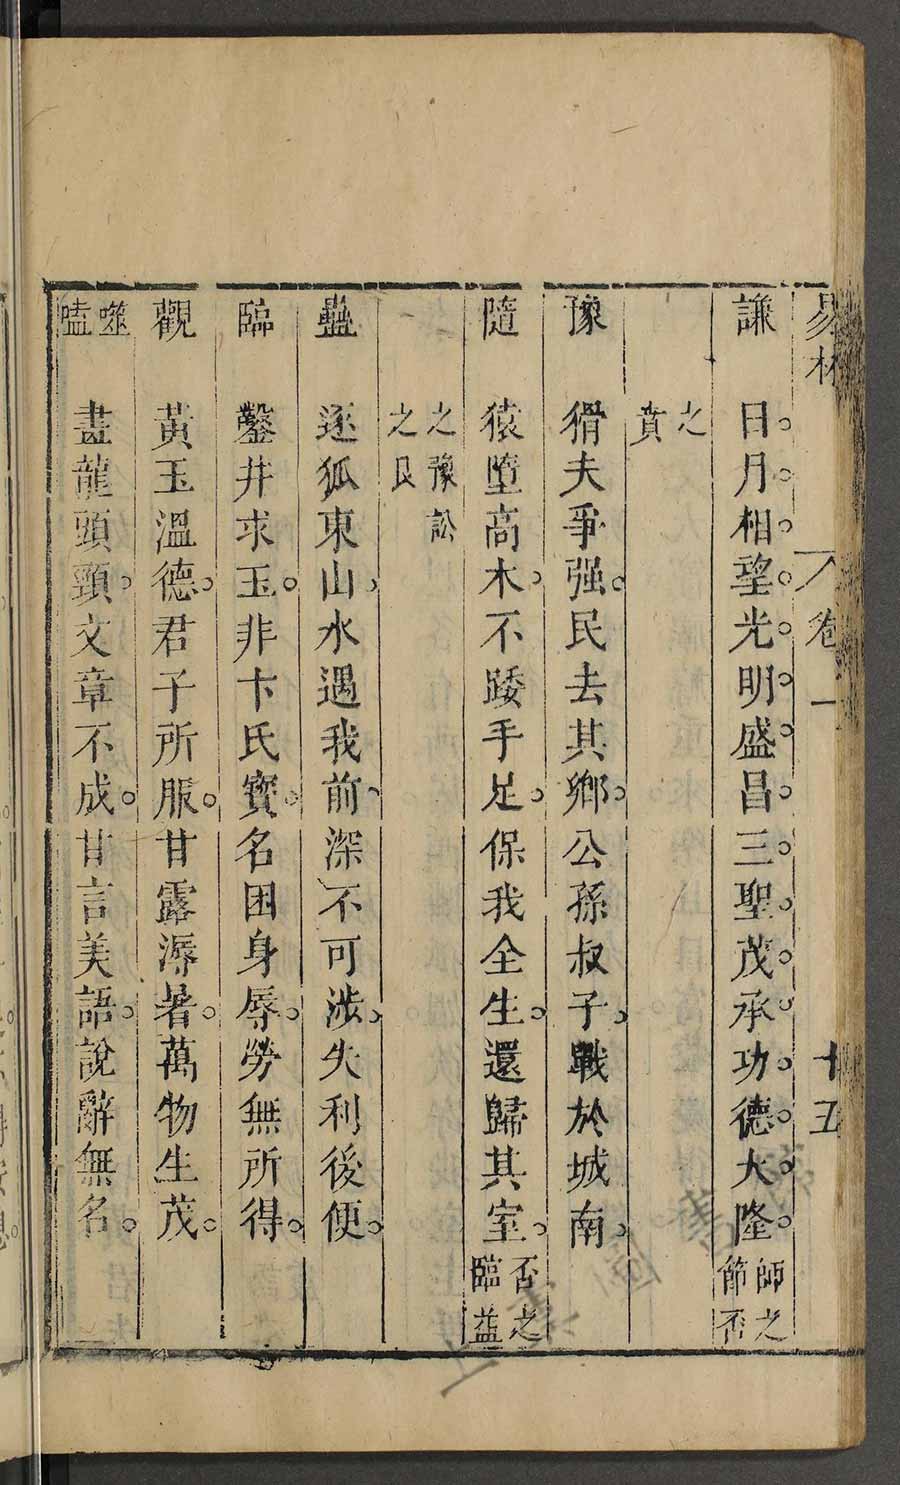 易林 卷一 十五
謙 日月相望光明盛昌三聖茂承功德大隆師之節否
之賁
豫 猾夫爭强民去其鄉公孫叔子戰於城南
隨 猿墮高木不踒手足保我全生還歸其室否之臨益
之豫訟之艮
蠱 逐狐東山水遇我前深不可涉失利後便
臨 鑿井求玉非卞氏寶名困身辱勞無所得
觀 黃玉溫德君子所服甘露溽暑萬物生茂
噬嗑 晝龍頭頸文章不成甘言美語說辭無名